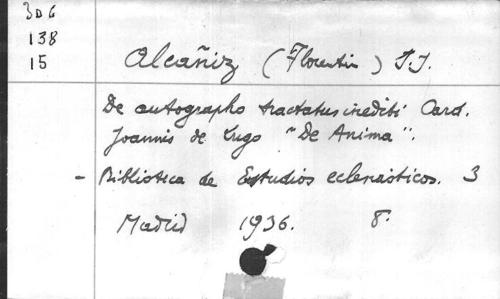 3 D 6
138
15
Alcañiz (Florentin) S.J.
De autographo tractatus inediti Card.
Joannis de Lugo "De Anima".
- Biblioteca de Estudios eclesiásticos. 3
Madrid 1936. 8.